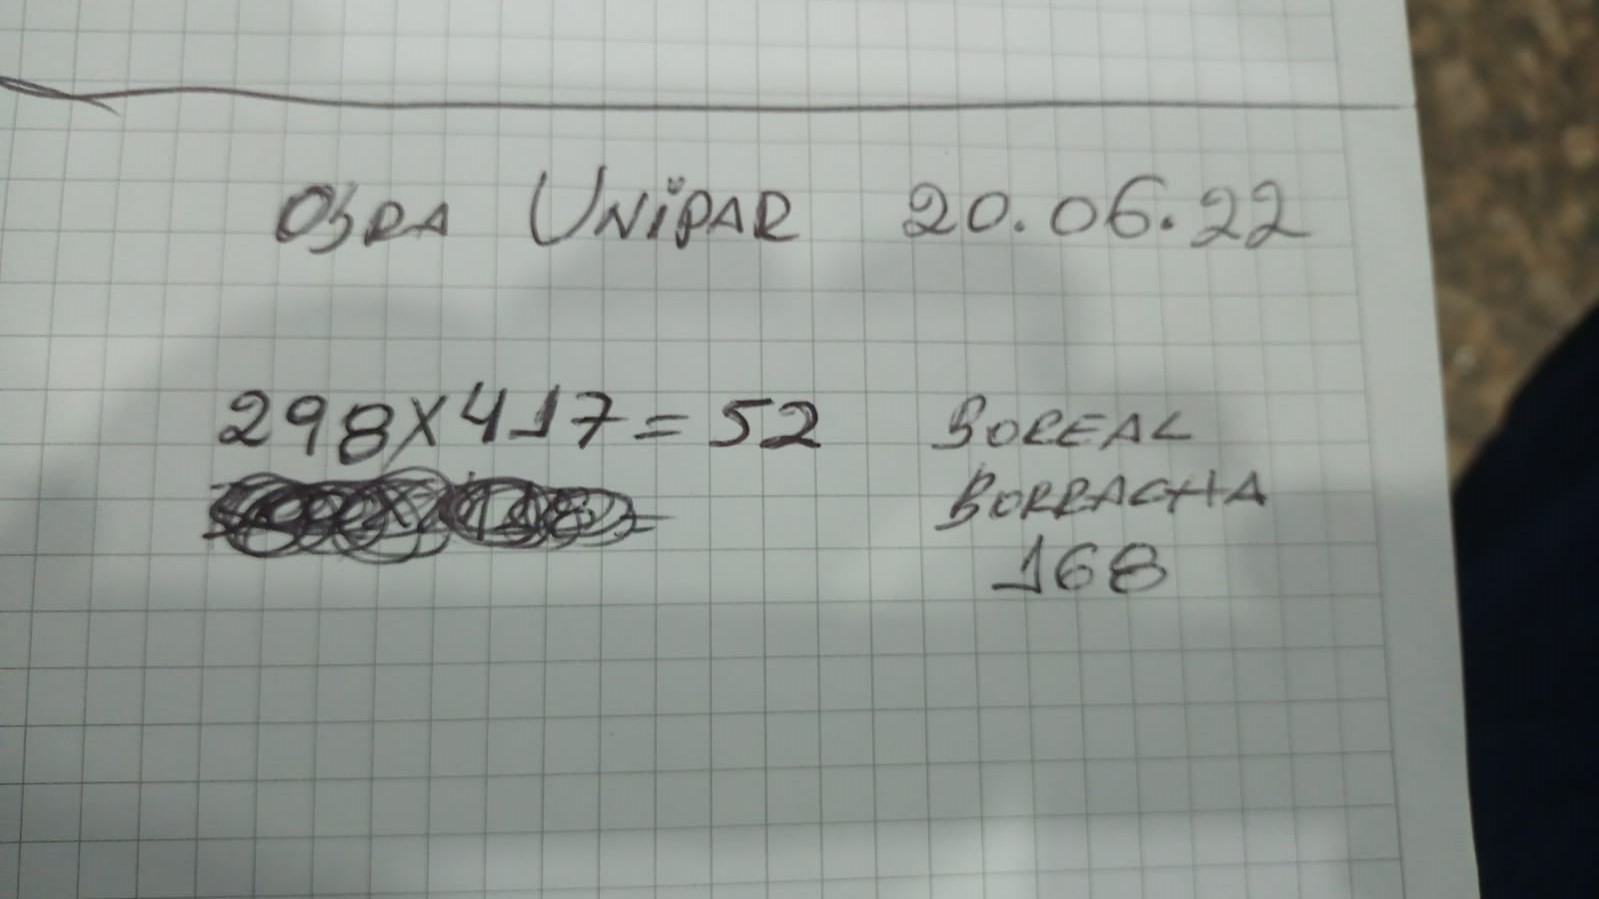 OBRA UNIPAR 20.06.22
298X417=52 BOREAL
BORRACHA
168